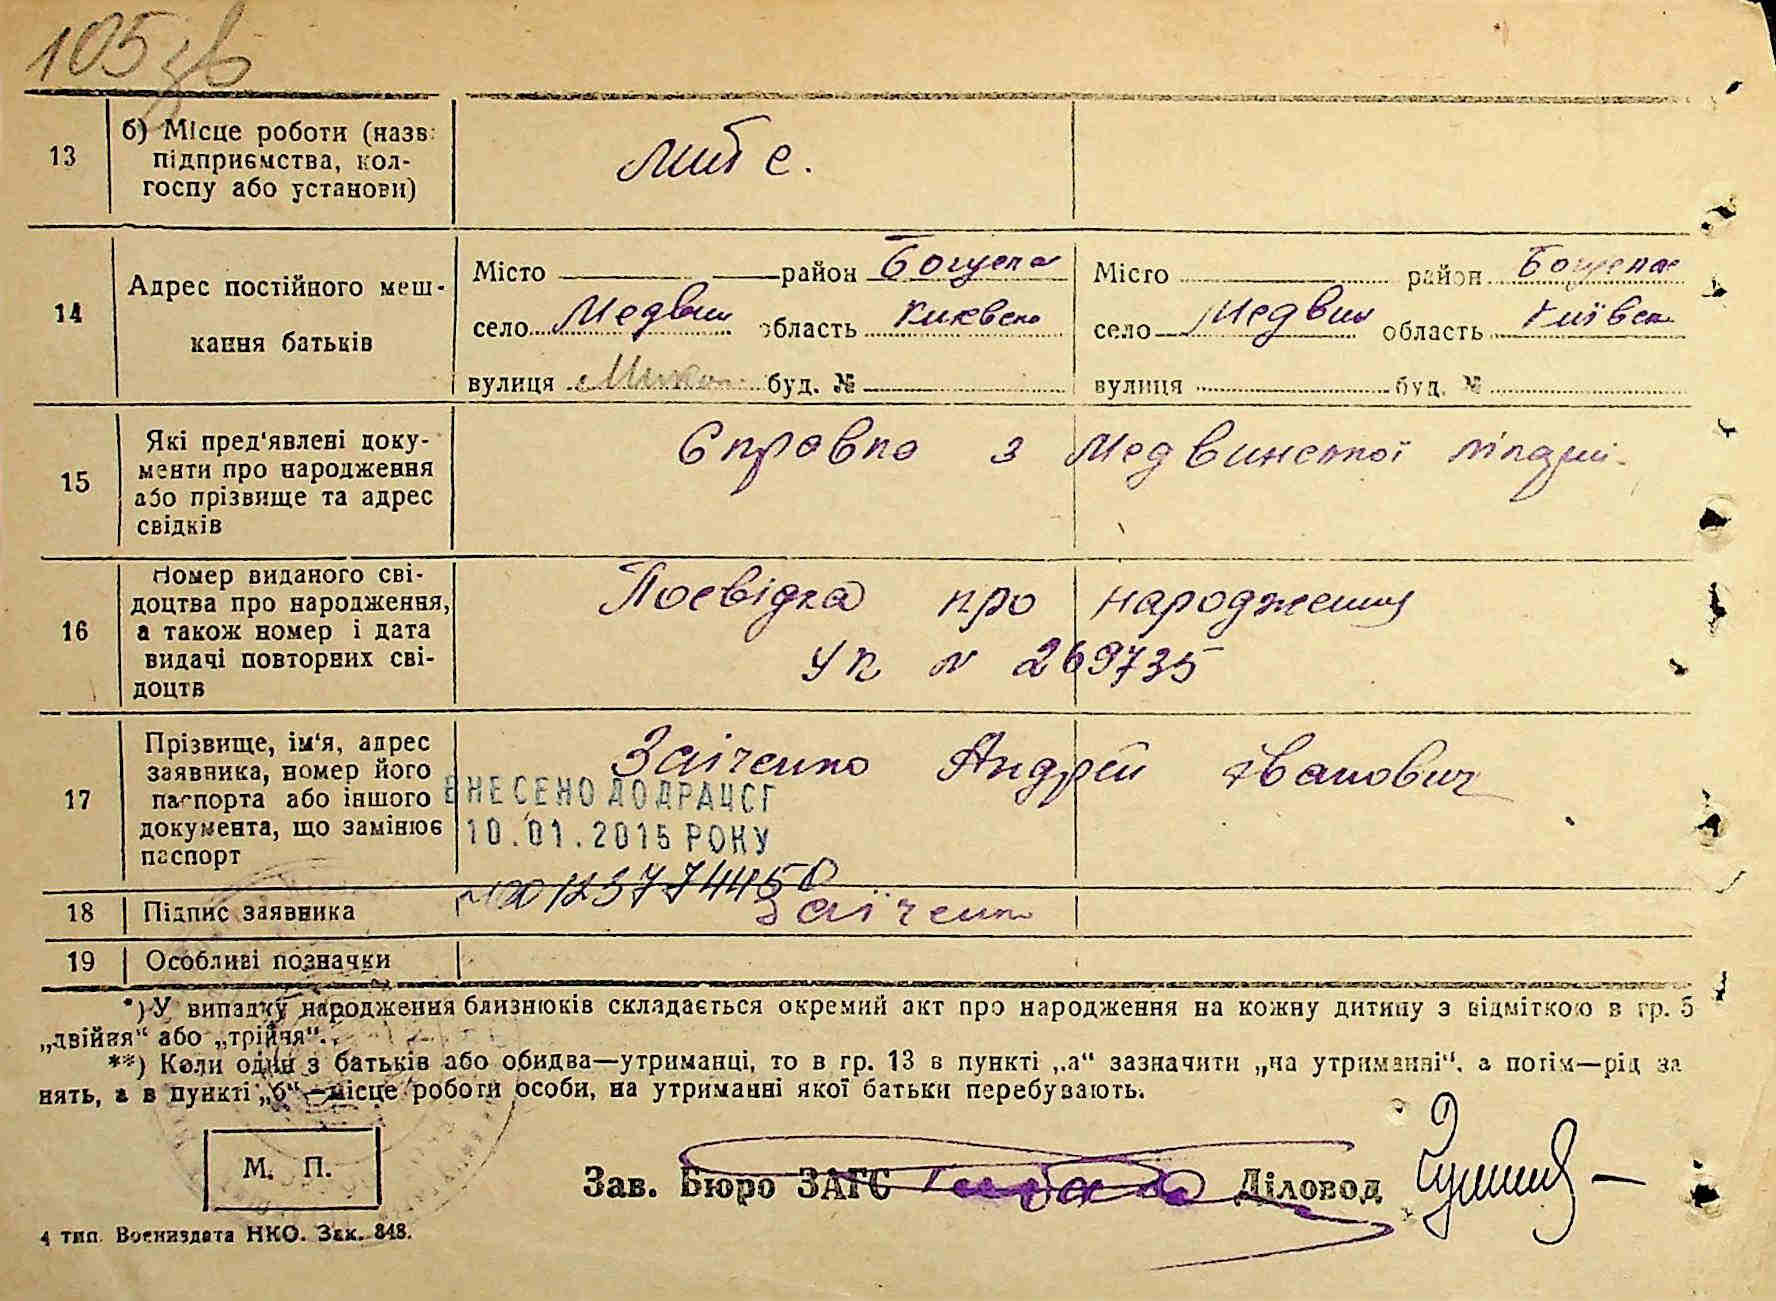 105 зв
13
б) Місце роботи (назв.
підприємства, кол-
госпу або установи)
14
Адрес постійного меш-
кання батьків
Місто район Богусла
село Медвин область Київська
вулиця буд. №
Місто район Богусла
село Медвин область Київська
вулиця буд. №
15
Які пред'явлені доку-
менти про народження
або прізвище та адрес
свідків
Справка з Медвинської
16
Номер виданого сві-
доцтва про народження,
а також номер і дата
видачі повторних сві-
доцтв
Посвідка про народження
УК № 269735
17
Прізвище, ім'я, адрес
заявника, номер його
паспорта або іншого
документа, що замінює
паспорт
Заіченко Андрей Іванович
ВНЕСЕНО ДО ДРАЦСГ
10.01.2015 РОКУ
18
Підпис заявника
Заіченко
19
Особливі позначки
*) У випадку народження близнюків складається окремий акт про народження на кожну дитину з відміткою в гр. 5
„двійня“ або „трійня“.
**) Коли один з батьків або обидва—утриманці, то в гр. 13 в пункті „а“ зазначити „на утриманні“, а потім—рід за
нять, а в пункті „б“—місце роботи особи, на утриманні якої батьки перебувають.
М. П.
Зав. Бюро ЗАГС Діловод
4 тип. Воениздата НКО. Зак. 848.